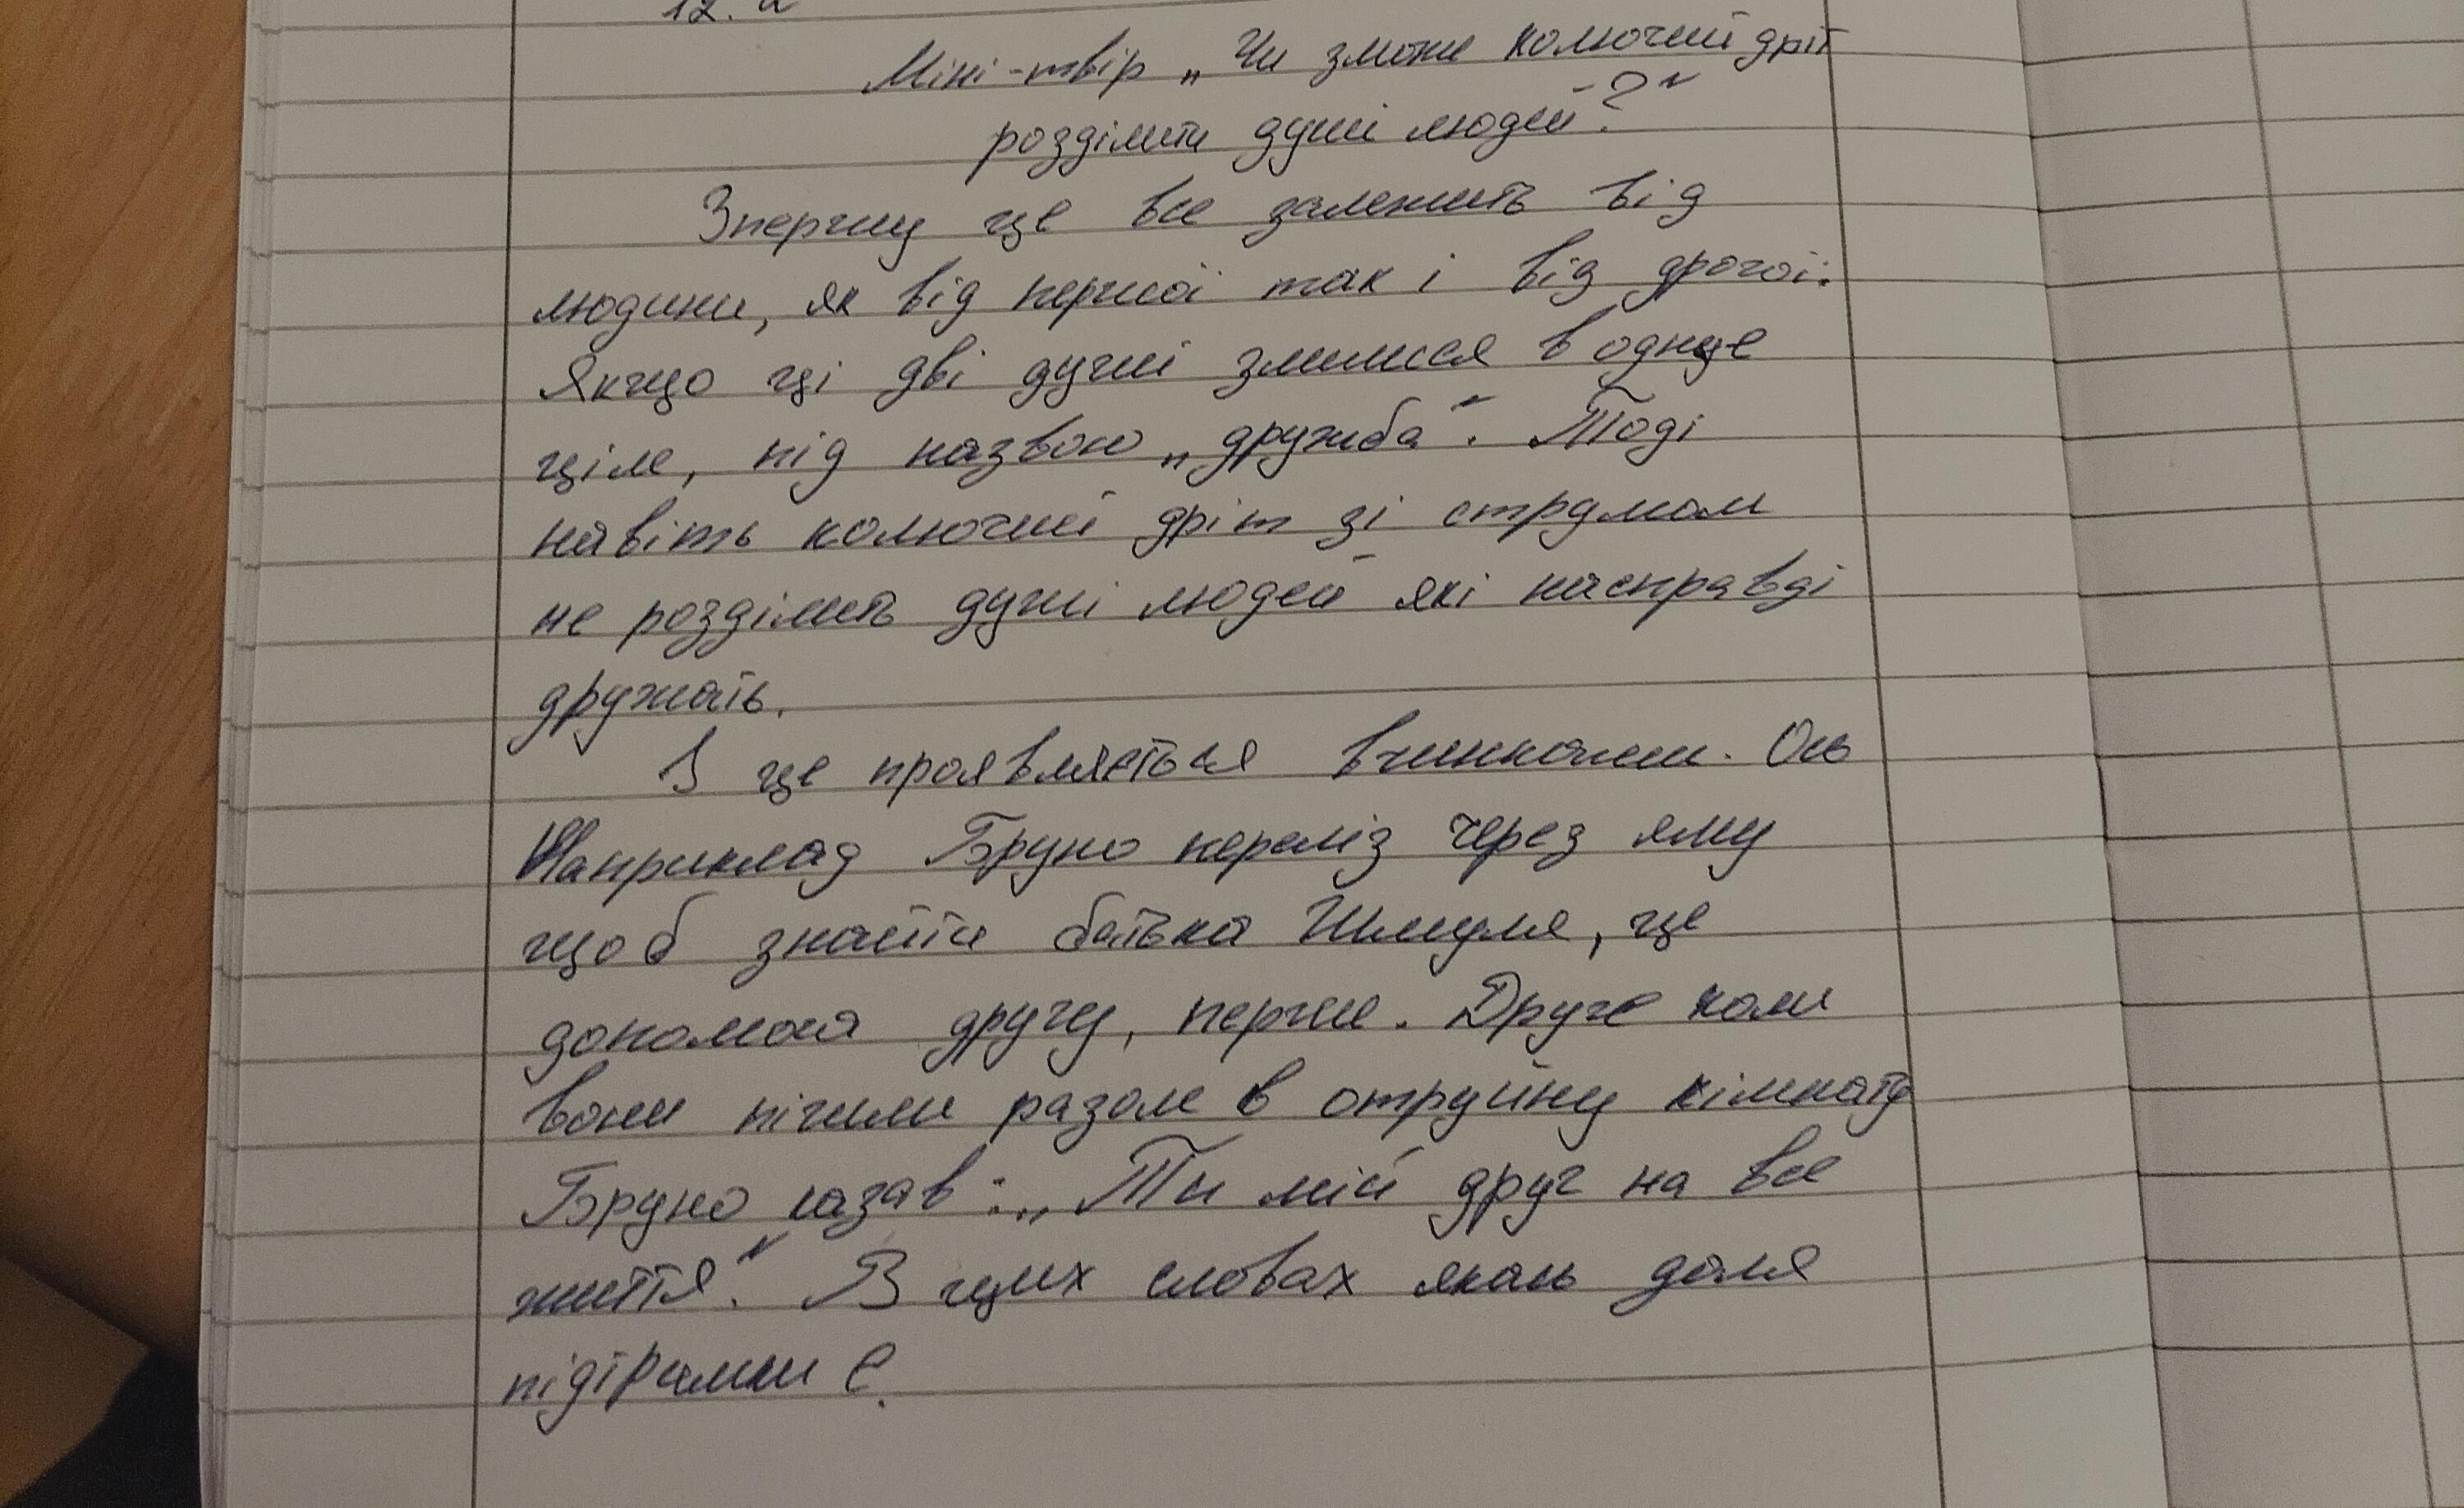 12. а
Міні-твір „Чи зможе колючий дріт
розділити душі людей?"
Зпершу це все залежить від
людини, як від першої так і від дрогої.
Якщо ці дві душі злилися в однце
ціле, під назвою „дружба". Тоді
навіть колючий дріт зі струмом
не розділить душі людей які насправді
дружать.
З це проявляється вчинками. Ось
Наприклад Бруно переліз через яму
щоб знайти батька Шмуля, це
допомога другу, перше. Друге коли
вони пішли разом в отруйну кімнату
Бруно казав: „Ти мій друг на все
життя". В цих словах якась доля
підтримки є.